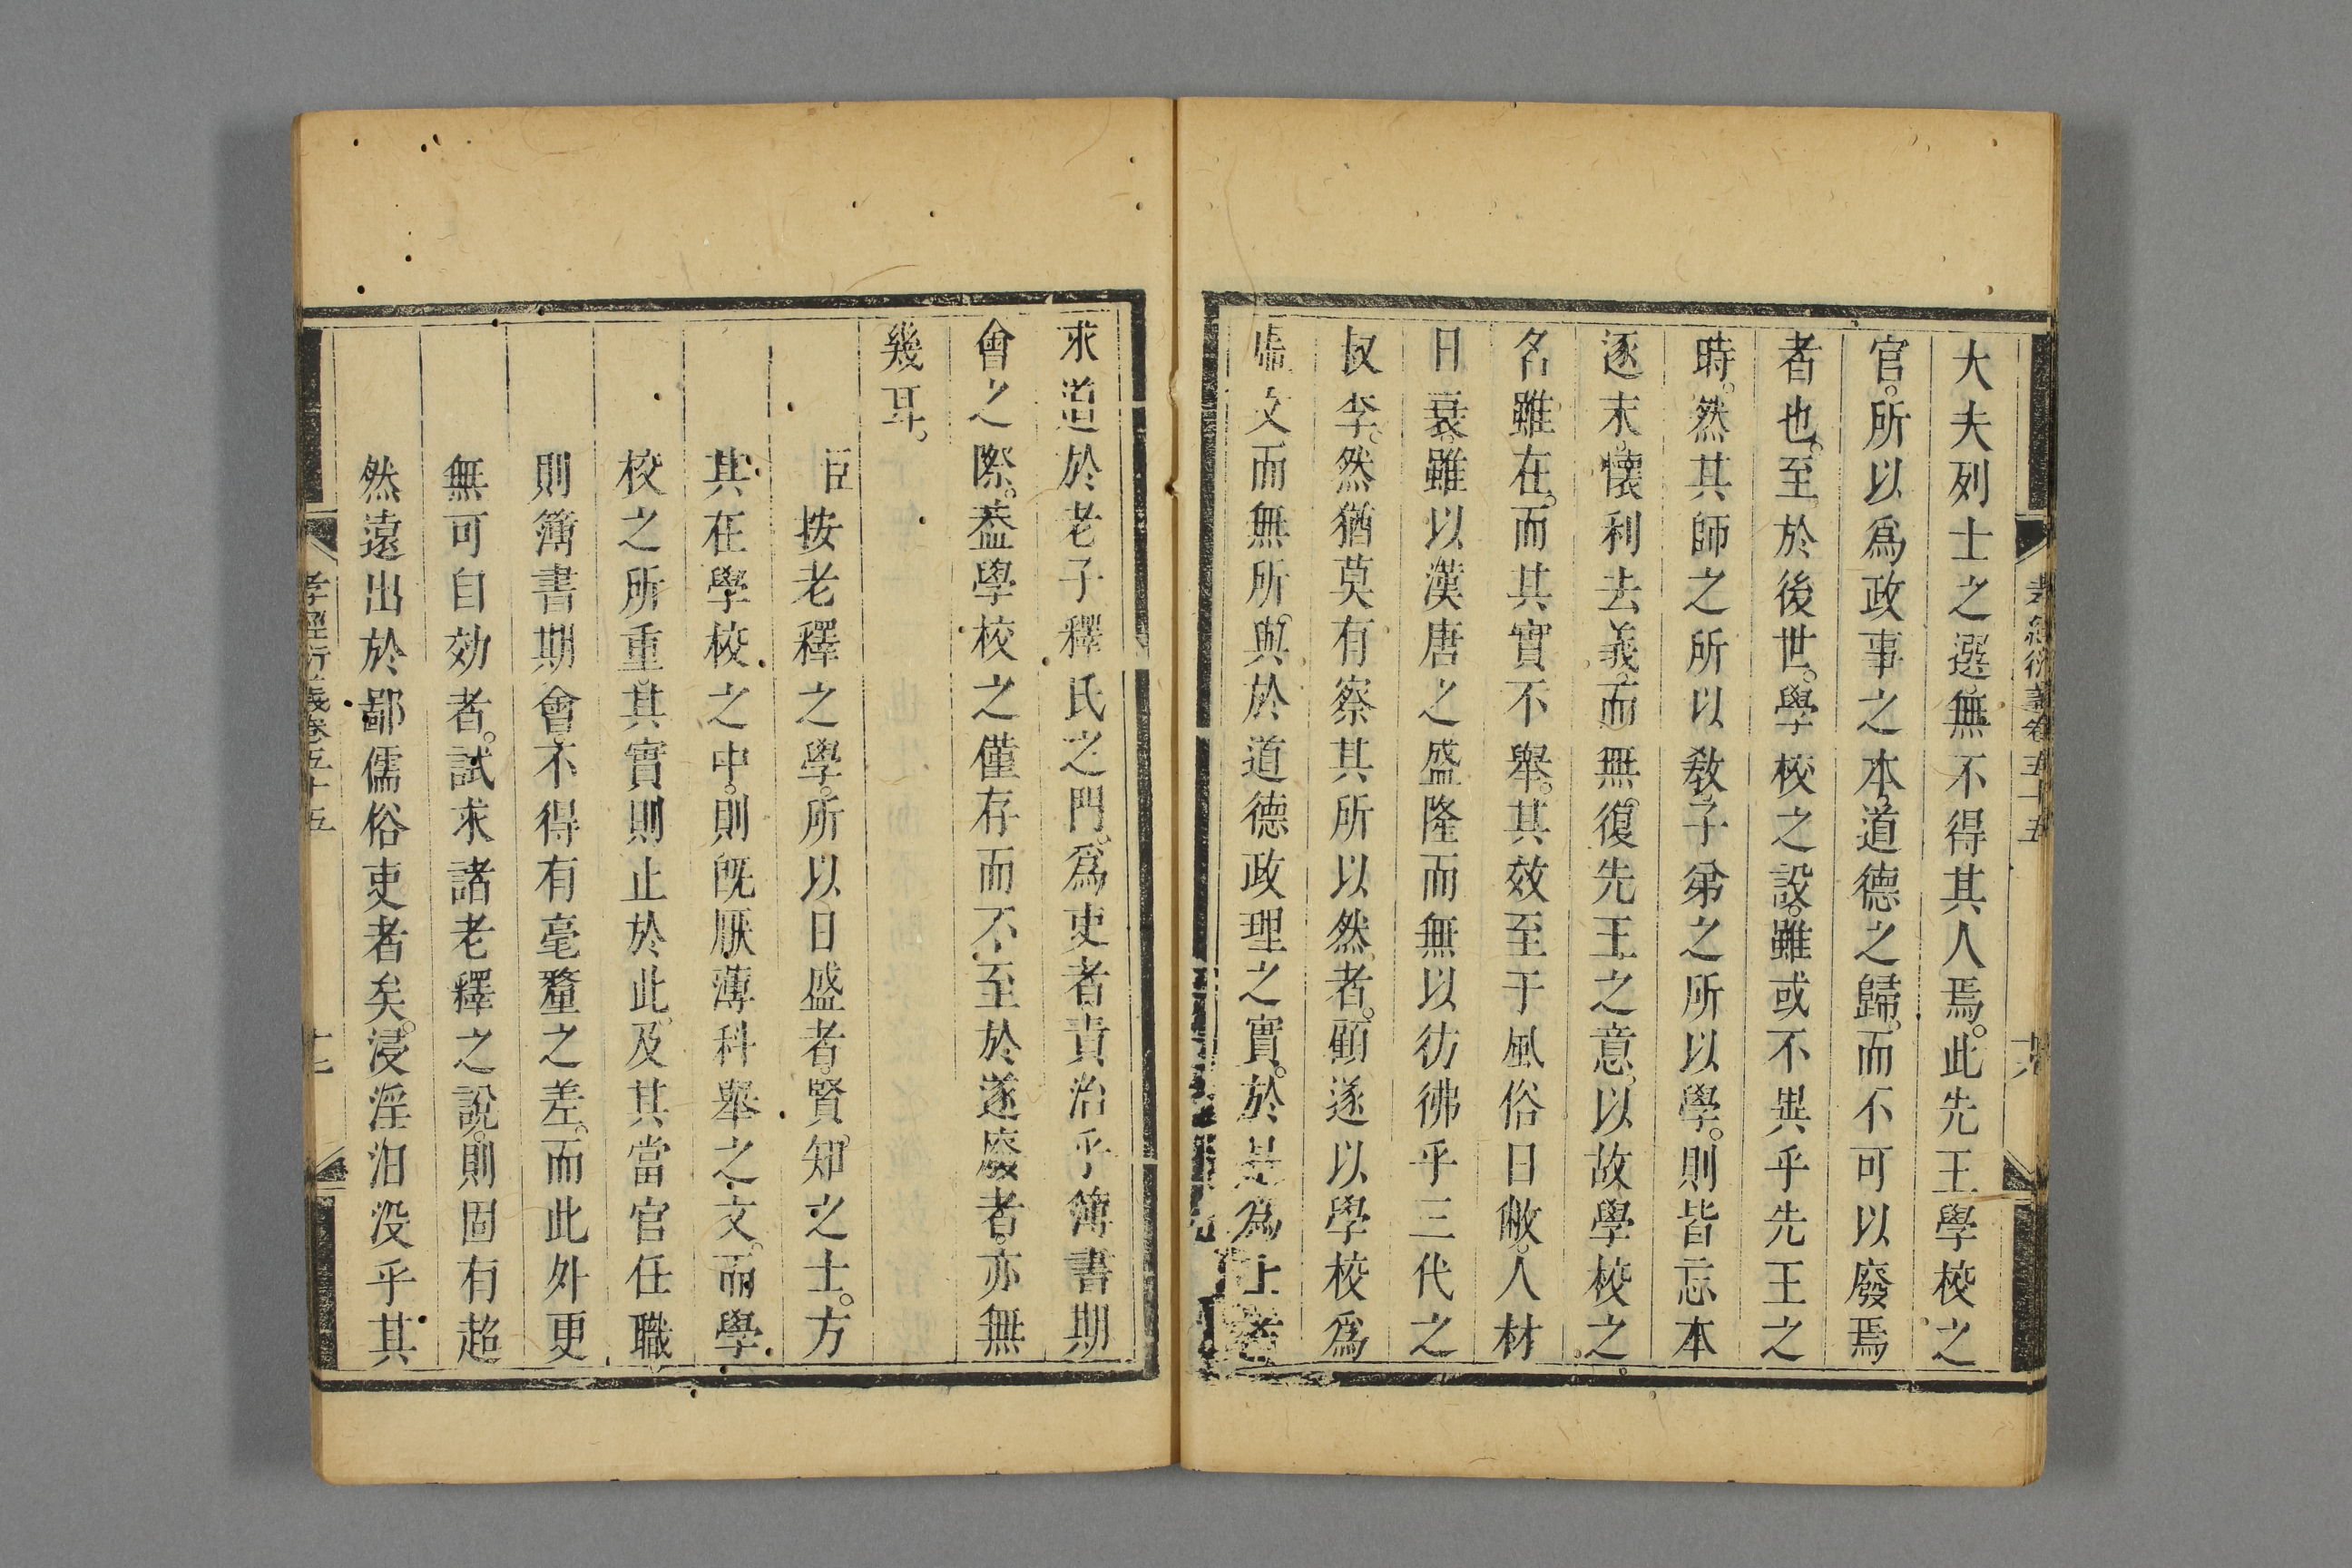 孝經衍義卷五十五
大夫列士之選無不得其人焉。此先王學校之
官。所以爲政事之本。道德之歸。而不可以廢焉
者也。至於後世。學校之設。雖或不異乎先王之
時。然其師之所以敎。子弟之所以學。則皆忘本
逐末。懷利去義。而無。復先王之意。以故學校之。
名雖在。而其實不舉。其效至于風俗日敝。人材
日衰。雖以漢唐之盛隆而無以彷彿乎三代之
叔季。然猶莫有察其所以然者。顧遂以學校爲
虛文而無所。與於道德政理之實。於是爲士者
求道於老子釋氏之門。爲吏者責治乎簿書期
會之際。葢學校之僅存而不至於遂廢者。亦無
幾耳。
臣按老釋之學。所以日盛者。賢。知之士。方
其在學校之中。則旣厭薄科舉之文。而學
校之所重。其實則止於此。及其當官任職
則簿書期會。不得有毫釐之差。而此外更
無可自効者。試求諸老釋之說。則固有超
然遠出於鄙儒俗吏者矣。浸淫汨没乎其
孝經衍義卷五十五